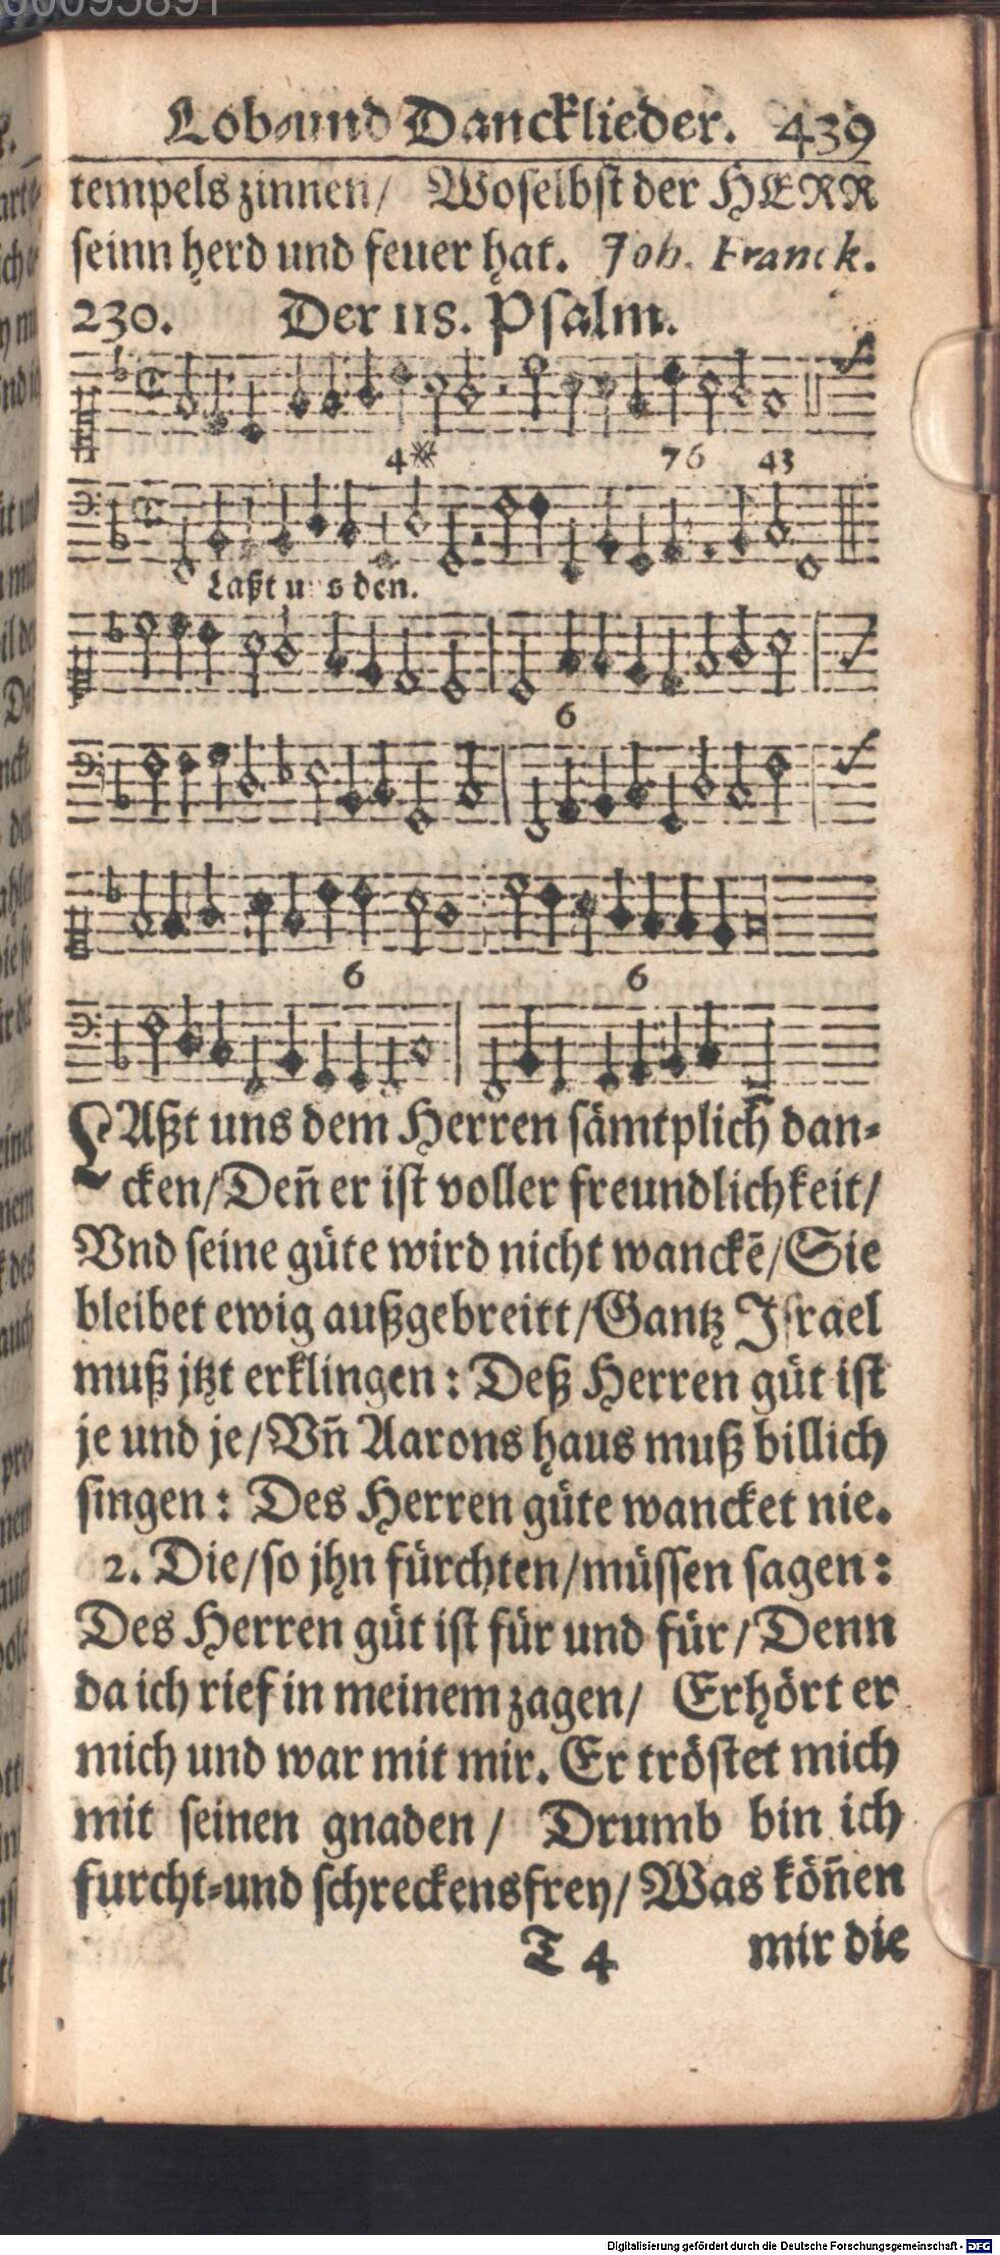 Lob-und Dancklieder. 439
tempels zinnen/ Woselbst der HERR
seinn herd und feuer hat. Joh. Franck.
230. Der 118. Psalm.
4 76 43
Laßt uns den.
6
6 6
LAßt uns dem Herren sämtplich dan-
cken/Deñ er ist voller freundlichkeit/
Vnd seine güte wird nicht wanckē/Sie
bleibet ewig außgebreitt/Gantz Israel
muß jtzt erklingen: Deß Herren güt ist
je und je/Vñ Aarons haus muß billich
singen: Des Herren güte wancket nie.
2. Die/so jhn fürchten/müssen sagen:
Des Herren güt ist für und für/Denn
da ich rief in meinem zagen/ Erhört er
mich und war mit mir. Er tröstet mich
mit seinen gnaden/ Drumb bin ich
furcht-und schreckensfrey/Was köñen
T 4 mir die
Digitalisierung gefördert durch die Deutsche Forschungsgemeinschaft - DFG